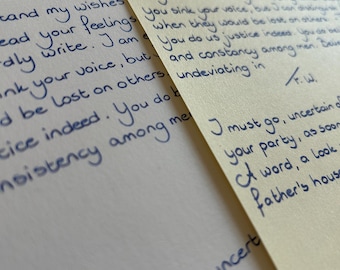 and my wishes
read your feelings
rdly write. I am e
ink your voice, but
d be lost on others
tice indeed. You do b
nsistency among me
uncert
you sink your voice, but I can
when they would be lost on other
you do us justice indeed. You do
and constancy among men.
undeviating in
F. W.
I must go, uncertain of
your party, as soon
A word, a look
father's house